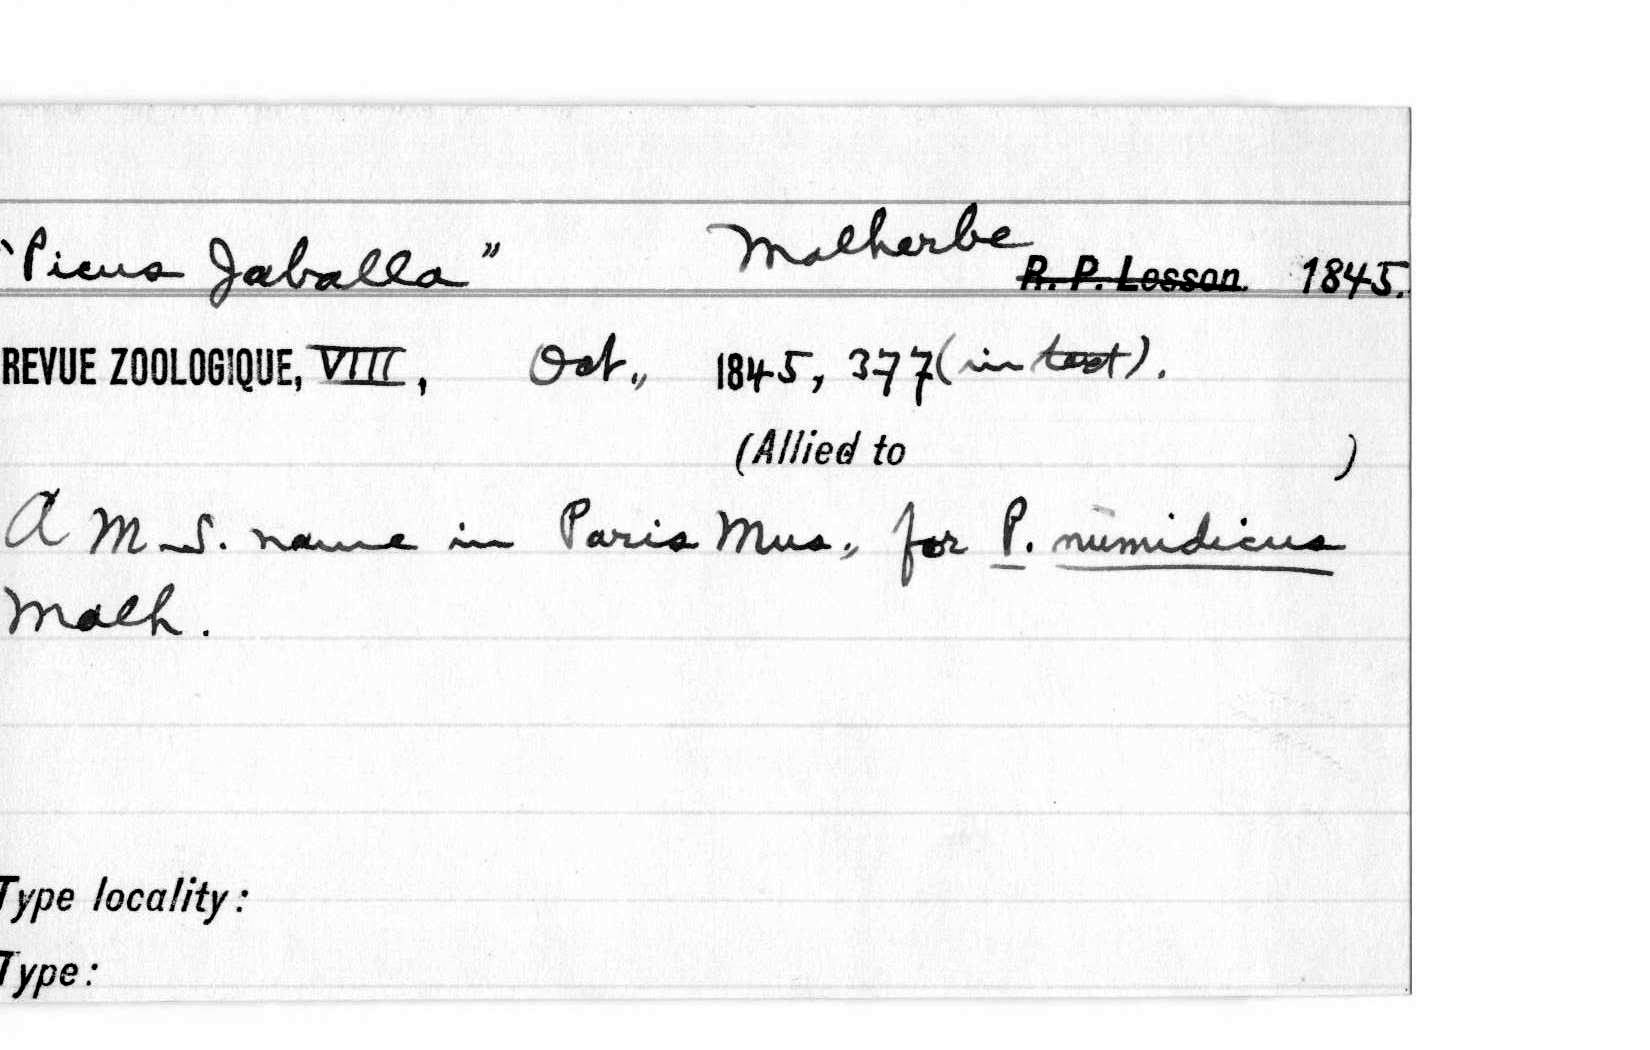 "Picus Jaballa" Malherbe R. P. Lesson. 1845.
REVUE ZOOLOGIQUE, VIII, Oct., 1845, 377 (in text).
(Allied to )
A M.S. name in Paris Mus., for P. numidicus
Malh.
Type locality:
Type: